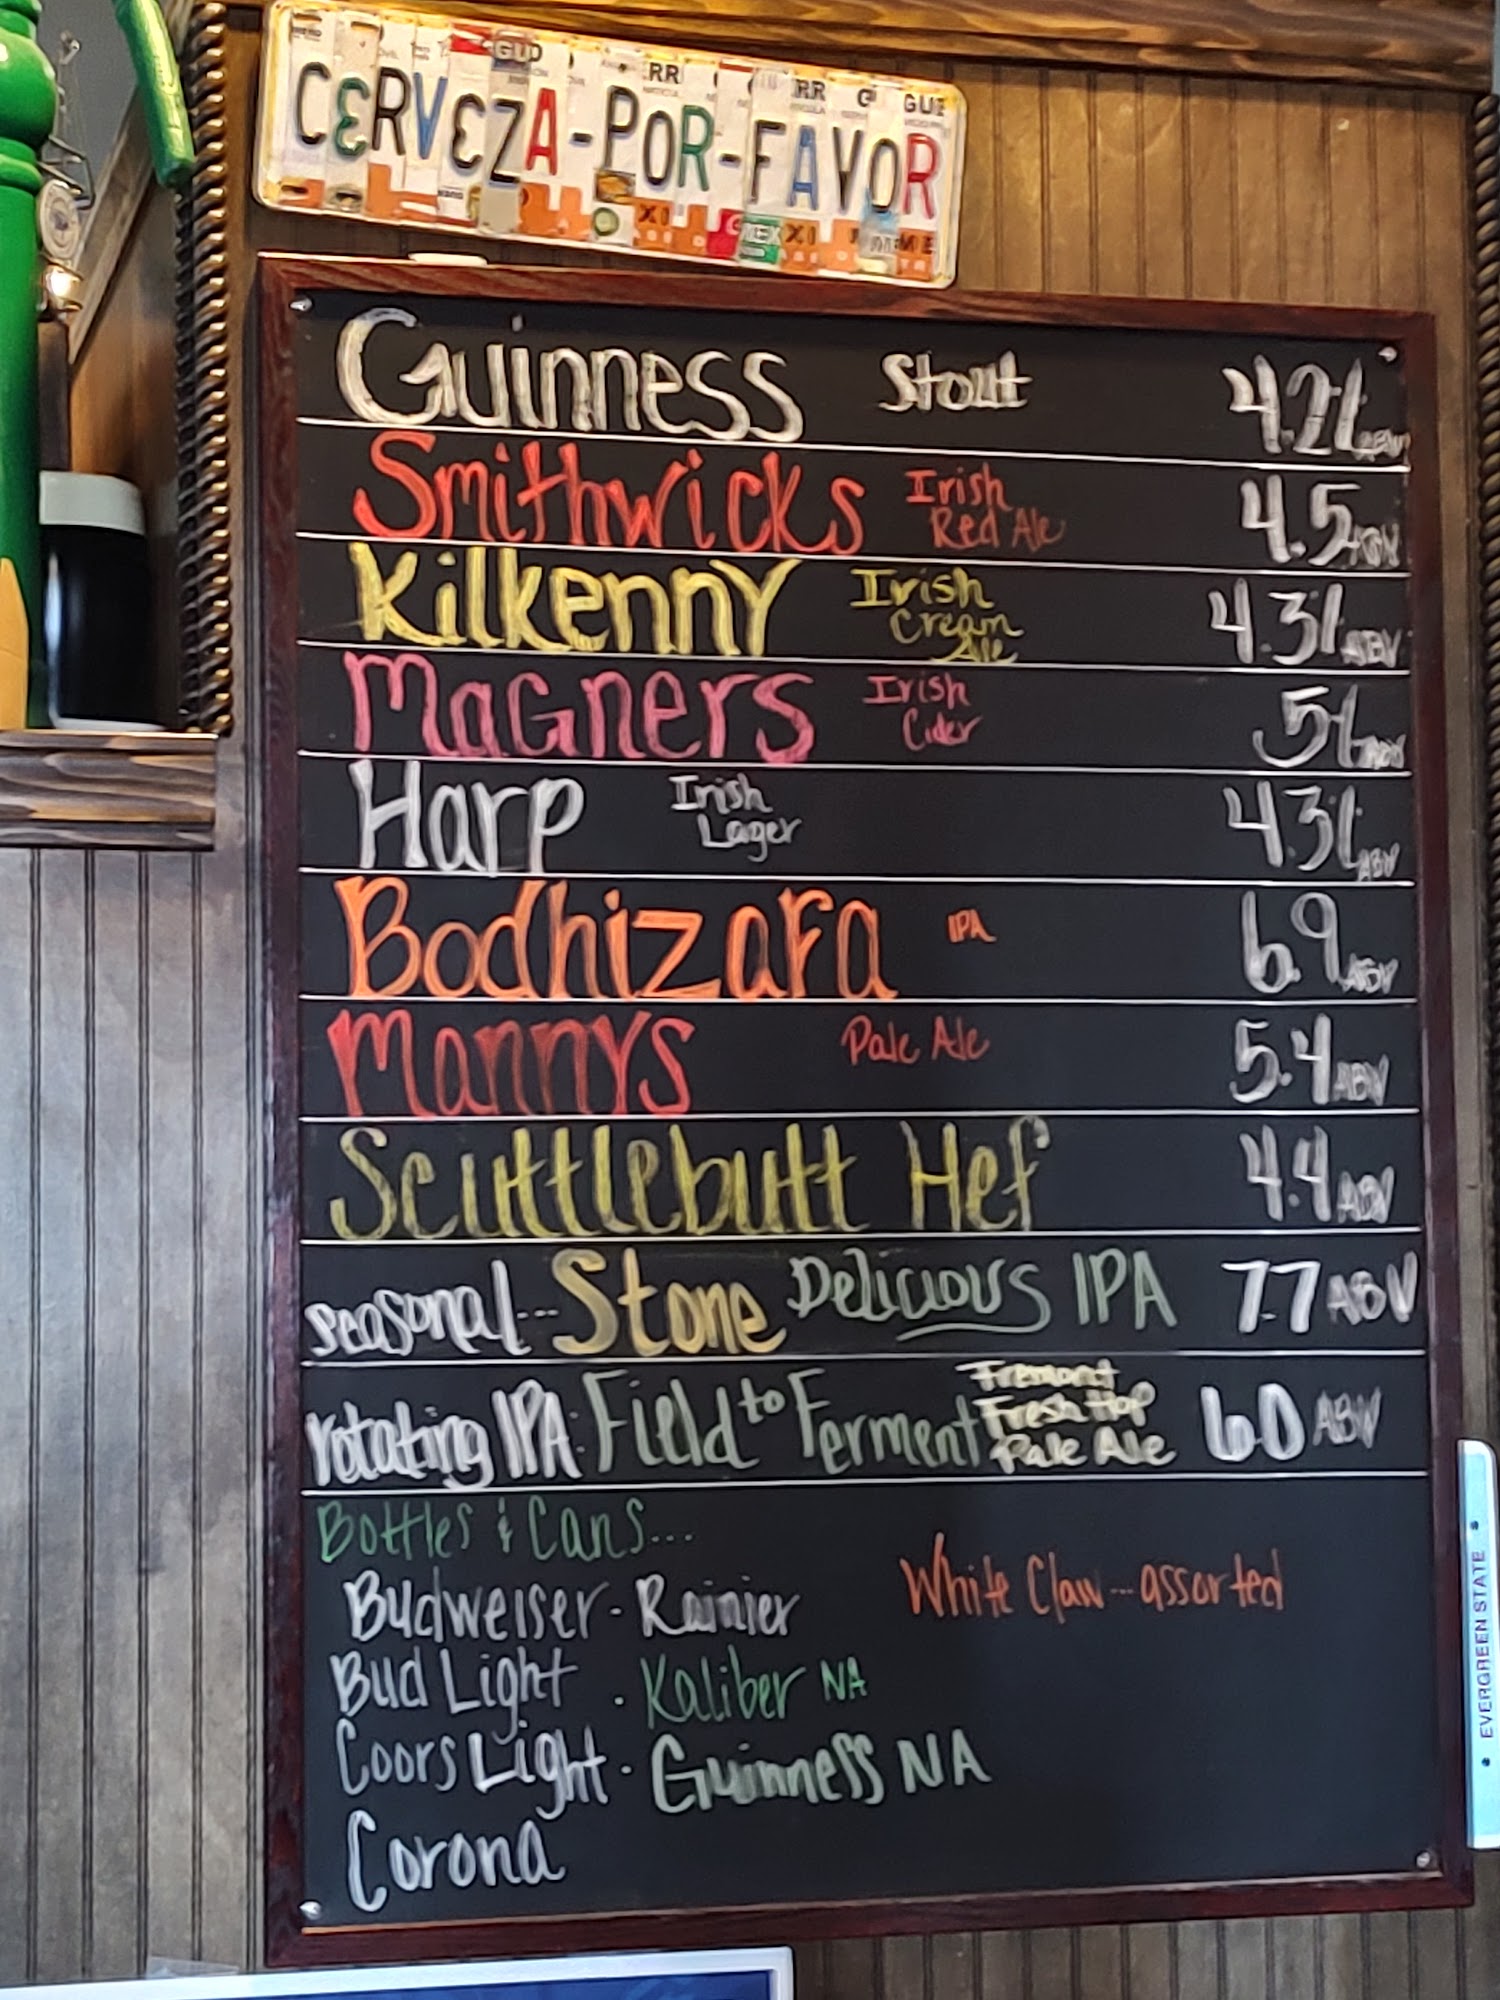 CERVEZA-POR-FAVOR
Guinness Stout 4.2% ABV
Smithwicks Irish Red Ale 4.5 ABV
Kilkenny Irish Cream Ale 4.3% ABV
Magners Irish Cider 5% ABV
Harp Irish Lager 4.3% ABV
Bodhizafa IPA 6.9 ABV
Mannys Pale Ale 5.4 ABV
Scuttlebutt Hef 4.4 ABV
seasonal... Stone Delicious IPA 7.7 ABV
rotating IPA: Field to Ferment Fremont Fresh Hop Pale Ale 6.0 ABV
Bottles & Cans...
Budweiser - Rainier White Claw... assorted
Bud Light . Kaliber NA
Coors Light . Guinness NA
Corona
EVERGREEN STATE